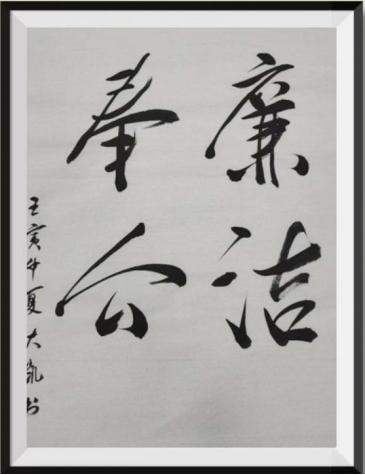 廉洁
奉公
壬寅年夏大凯书